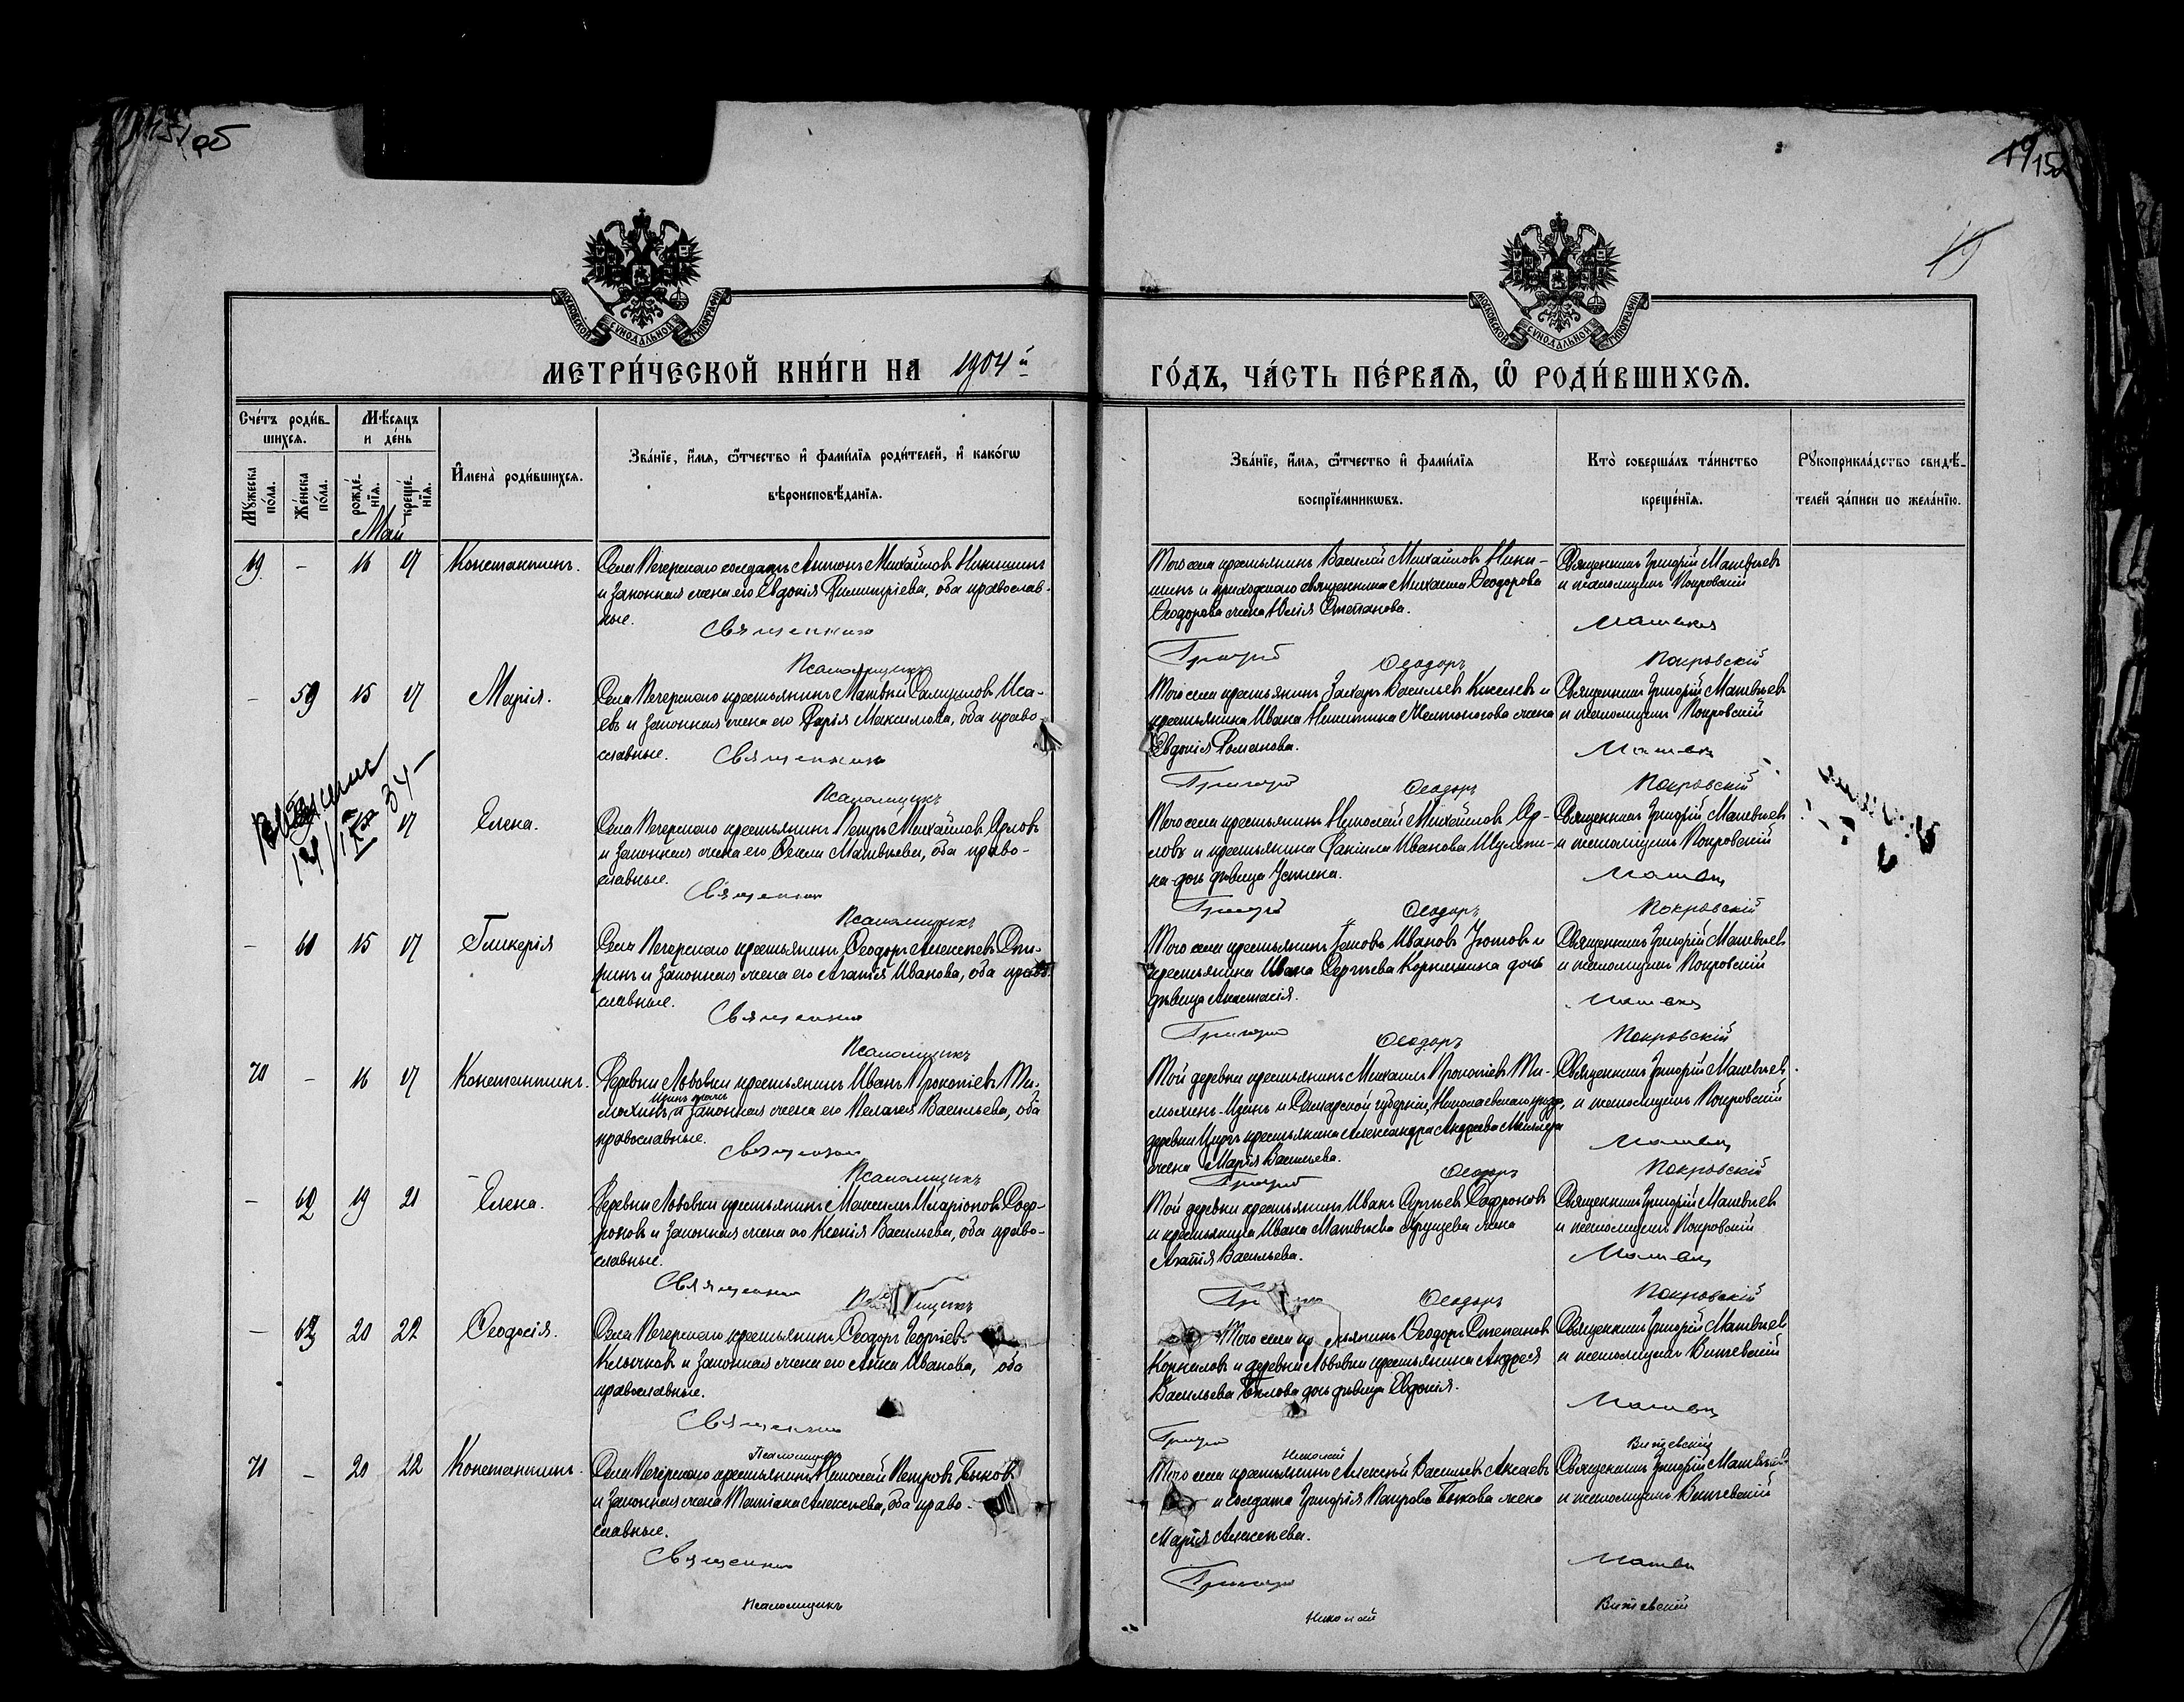 151 об
19 152
19
МОСКОВСКОЙ СУНОДАЛЬНОЙ ТИПОГРАФІИ
МОСКОВСКОЙ СУНОДАЛЬНОЙ ТИПОГРАФІИ
МЕТРИ́ЧЕСКОЙ КНИ́ГИ НА 1904 й
ГО́ДЪ, ЧА́СТЬ ПЕ́РВАѦ, Ѡ РОДИ́ВШИХСѦ.
Сче́тъ роди́в-
шихсѧ.
Мѣ́сѧцъ
и де́нь
Мꙋ́жеска по́ла.
Же́нска по́ла.
рожде́-нїѧ.
креще́-нїѧ.
И҆мена̀ роди́вшихсѧ.
Зва́нїе, и҆́мѧ, ѻ҆́тчество и҆ фами́лїѧ роди́телей, и҆ како́гѡ
вѣроисповѣ́данїѧ.
Зва́нїе, и҆́мѧ, ѻ҆́тчество и҆ фами́лїѧ
воспрїе́мникѡвъ.
Кто̀ соверша́лъ та́инство
креще́нїѧ.
Рꙋкоприкла́дство свидѣ́-
телей за́писи по жела́нїю.
Май
69 - 16 17 Константинъ.
Села Печерскаго солдатъ Антонъ Михайловъ Никишинъ
и законная жена его Евдокія Димитріева, оба православ-
ные.
Священникъ
Псаломщикъ
Того села крестьянинъ Василій Михайловъ Ники-
шинъ и приходскаго священника Михаила Ѳеодорова
Ѳеодорова жена Юлія Степанова.
Григорій Ѳеодоръ
Священникъ Григорій Матвѣевъ
и псаломщикъ Покровскій
Матвѣевъ
Покровскій
- 59 15 17 Марія.
Села Печерскаго крестьянинъ Матвѣй Самуиловъ Иса-
евъ и законная жена его Дарія Максимова, оба право
славные.
Священникъ
Псаломщикъ
Того села крестьянинъ Захаръ Васильевъ Киселевъ и
крестьянина Ивана Никитина жена
Евдокія Романова.
Григорій Ѳеодоръ
Священникъ Григорій Матвѣевъ
и псаломщикъ Покровскій
Матвѣевъ
Покровскій
17 Елена.
Села Печерскаго крестьянинъ Петръ Михайловъ Орловъ
и законная жена его Ѳекла Матвѣева, оба право-
славные.
Священникъ
Псаломщикъ
Того села крестьянинъ Николай Михайловъ Ор-
ловъ и крестьянина Даніила Иванова Шульги-
на дочь дѣвица
Григорій Ѳеодоръ
Священникъ Григорій Матвѣевъ
и псаломщикъ Покровскій
Матвѣевъ
Покровскій
- 61 15 17 Гликерія
Села Печерскаго крестьянинъ Ѳеодоръ Алексѣевъ
и законная жена его Агапія Иванова, оба право
славные.
Священникъ
Псаломщикъ
Того села крестьянинъ Іаковъ Ивановъ и
крестьянина Ивана Сергѣева дочь
дѣвица Анастасія.
Григорій Ѳеодоръ
Священникъ Григорій Матвѣевъ
и псаломщикъ Покровскій
Матвѣевъ
Покровскій
70 - 16 17 Константинъ.
Деревни Львовки крестьянинъ Иванъ Прокопіевъ
и законная жена его Пелагея Васильева, оба
православные.
Священникъ
Псаломщикъ
Той деревни крестьянинъ Михаилъ Прокопіевъ
и Самарской губерніи, Николаевскаго уѣзда,
деревни крестьянина Александра Андреева
жена Марія Васильева.
Григорій Ѳеодоръ
Священникъ Григорій Матвѣевъ
и псаломщикъ Покровскій
Матвѣевъ
Покровскій
- 62 19 21 Елена.
Деревни Львовки крестьянинъ Максимъ Иларіоновъ Соф-
роновъ и законная жена его Ксенія Васильева, оба право-
славные.
Священникъ
Псаломщикъ
Той деревни крестьянинъ Иванъ Сергѣевъ Софроновъ
и крестьянина Ивана Матвѣева Хрущева жена
Агапія Васильева.
Ѳеодоръ
Священникъ Григорій Матвѣевъ
и псаломщикъ Покровскій
Матвѣевъ
Покровскій
- 63 20 22 Ѳеодосія.
Села Печерскаго крестьянинъ Ѳеодоръ Георгіевъ
Клычковъ и законная жена его Анна Иванова, оба
православные.
Священникъ
Псаломщикъ
Того села Ѳеодоръ Степановъ
Корниловъ и деревни Львовки крестьянина Андрея
Васильева Бѣлова дочь дѣвица Евдокія.
Григорій Николай
Священникъ Григорій Матвѣевъ
и псаломщикъ Витевскій
Матвѣевъ
Витевскій
71 - 20 22 Константинъ.
Села Печерскаго крестьянинъ Николай Петровъ Быковъ
и законная жена Татіана Алексѣева, оба право-
славные.
Священникъ
Псаломщикъ
Того села крестьянинъ Алексѣй Васильевъ Аксаевъ
и солдата Григорія Петрова Быкова жена
Марія Алексѣева.
Григорій
Николай
Священникъ Григорій Матвѣевъ
и псаломщикъ Витевскій
Матвѣевъ
Витевскій